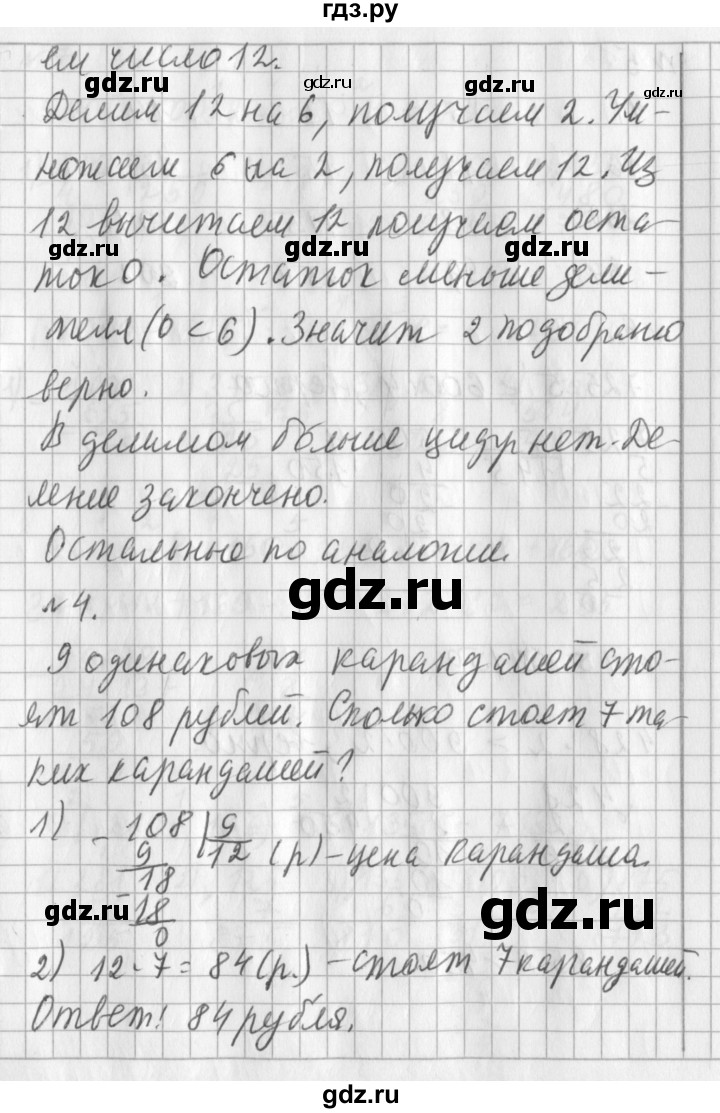 гдз.ру
ем число 12.
gdz.ru gdz.ru gdz.ru
Делим 12 на 6, получаем 2. Ум-
ножаем 6 на 2, получаем 12. Из
12 вычитаем 12 получаем оста-
gdz.ru gdz.ru gdz.ru
ток 0. Остаток меньше дели-
теля (0 < 6). Значит 2 подобрано
верно.
В делимом больше цифр нет. Де-
ление закончено.
Остальные по аналогии.
gdz.ru
№4.
9 одинаковых карандашей сто-
ят 108 рублей. Сколько стоят 7 та-
ких карандашей?
1) - 108 | 9
9 12 (р) - цена карандаша.
18
gdz.ru - 18 gdz.ru
0
2) 12 · 7 = 84 (р.) - стоят 7 карандашей.
Ответ: 84 рубля.
gdz.ru